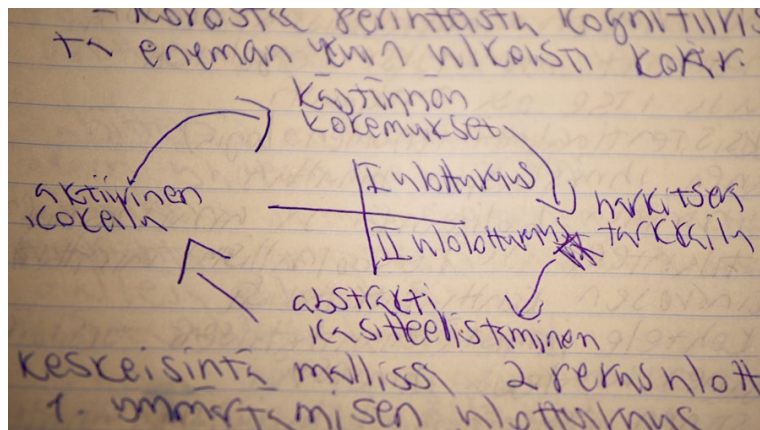 - korosta perinteistä kognitiivis
ta enemän kuin ulkoisti
käytännön
kokemukset
aktiivinen
kokeilu
I ulottuvuus
harkitseva
II ulolottuvuus
tarkkailu
abstrakti
käsitteelistäminen
keskeisintä mallissa 2 perusulott
1. ymmärtämisen ulottuvuus